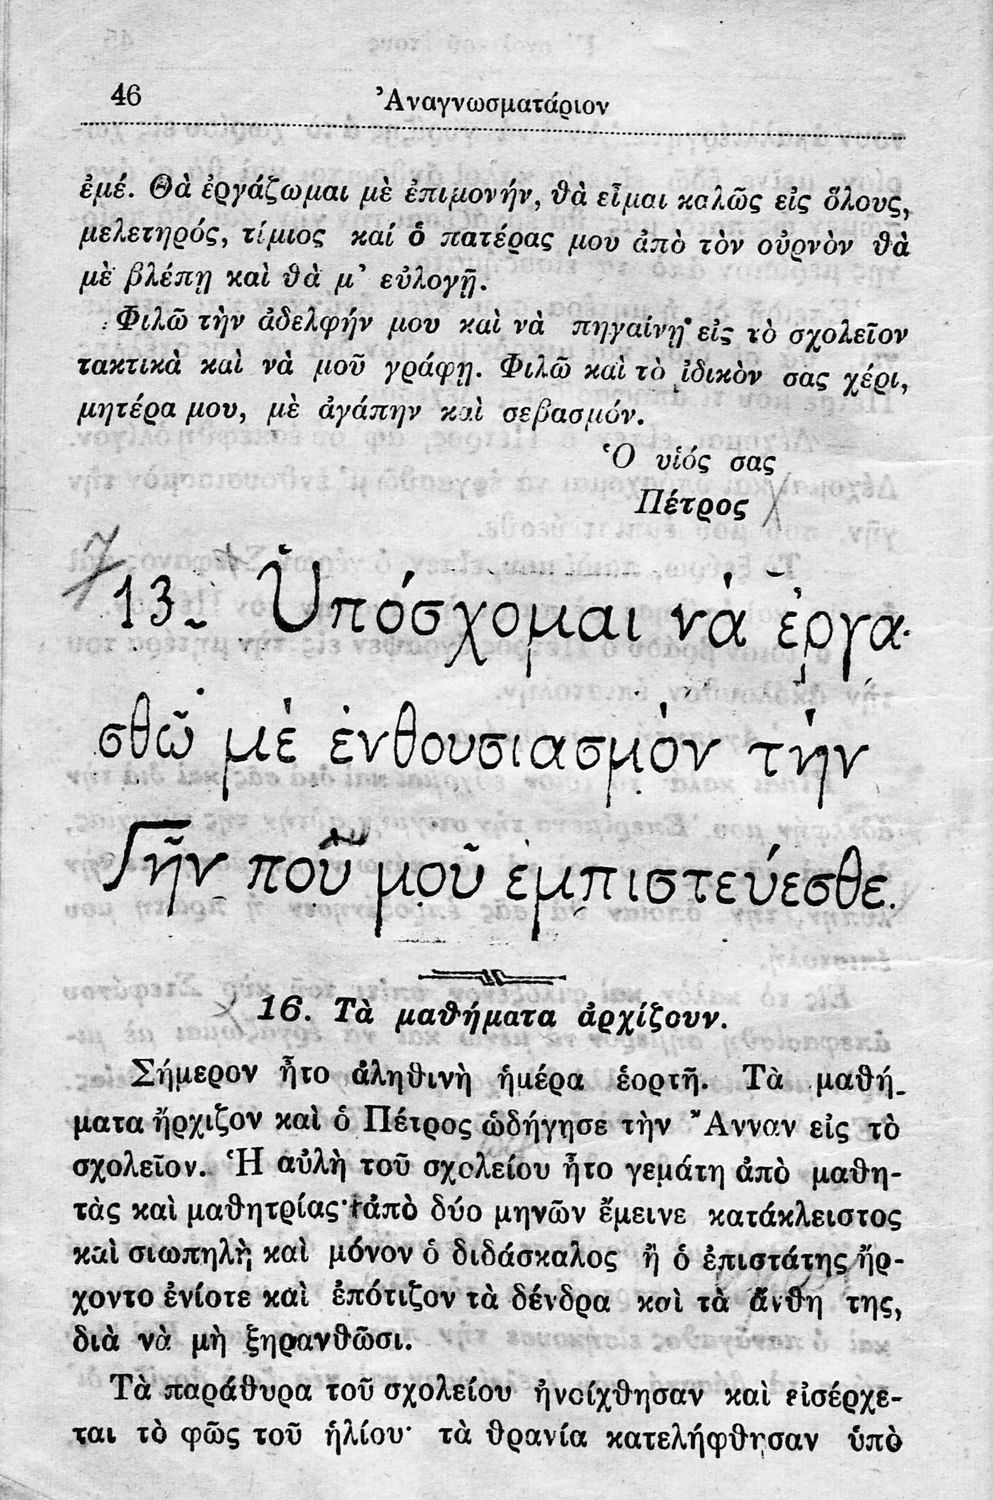 46
Ἀναγνωσματάριον
ἐμέ. Θὰ ἐργάζωμαι μὲ ἐπιμονήν, θὰ εἶμαι καλῶς εἰς ὅλους,
μελετηρός, τίμιος καί ὁ πατέρας μου ἀπὸ τὸν οὐρνὸν θὰ
μὲ βλέπῃ καὶ θὰ μ' εὐλογῇ.
Φιλῶ τὴν ἀδελφήν μου καὶ νὰ πηγαίνῃ εἰς τὸ σχολεῖον
τακτικὰ καὶ νὰ μοῦ γράφῃ. Φιλῶ καὶ τὸ ἰδικὸν σας χέρι,
μητέρα μου, μὲ ἀγάπην καὶ σεβασμόν.
Ὁ υἱός σας
Πέτρος
13. Ὑπόσχομαι νὰ ἐργα-
σθῶ μὲ ἐνθουσιασμὸν τὴν
Γῆν ποῦ μοῦ ἐμπιστεύεσθε.
16. Τὰ μαθήματα ἀρχίζουν.
Σήμερον ἦτο ἀληθινὴ ἡμέρα ἑορτῆ. Τὰ μαθή-
ματα ἤρχιζον καὶ ὁ Πέτρος ὡδήγησε τὴν Ἄνναν εἰς τὸ
σχολεῖον. Ἡ αὐλὴ τοῦ σχολείου ἦτο γεμάτη ἀπὸ μαθη-
τὰς καὶ μαθητρίας· ἀπὸ δύο μηνῶν ἔμεινε κατάκλειστος
καὶ σιωπηλὴ καὶ μόνον ὁ διδάσκαλος ἢ ὁ ἐπιστάτης ἤρ-
χοντο ἐνίοτε καὶ ἐπότιζον τὰ δένδρα καὶ τὰ ἄνθη της,
διὰ νὰ μὴ ξηρανθῶσι.
Τὰ παράθυρα τοῦ σχολείου ἠνοίχθησαν καὶ εἰσέρχε-
ται τὸ φῶς τοῦ ἡλίου· τὰ θρανία κατελήφθησαν ὑπὸ